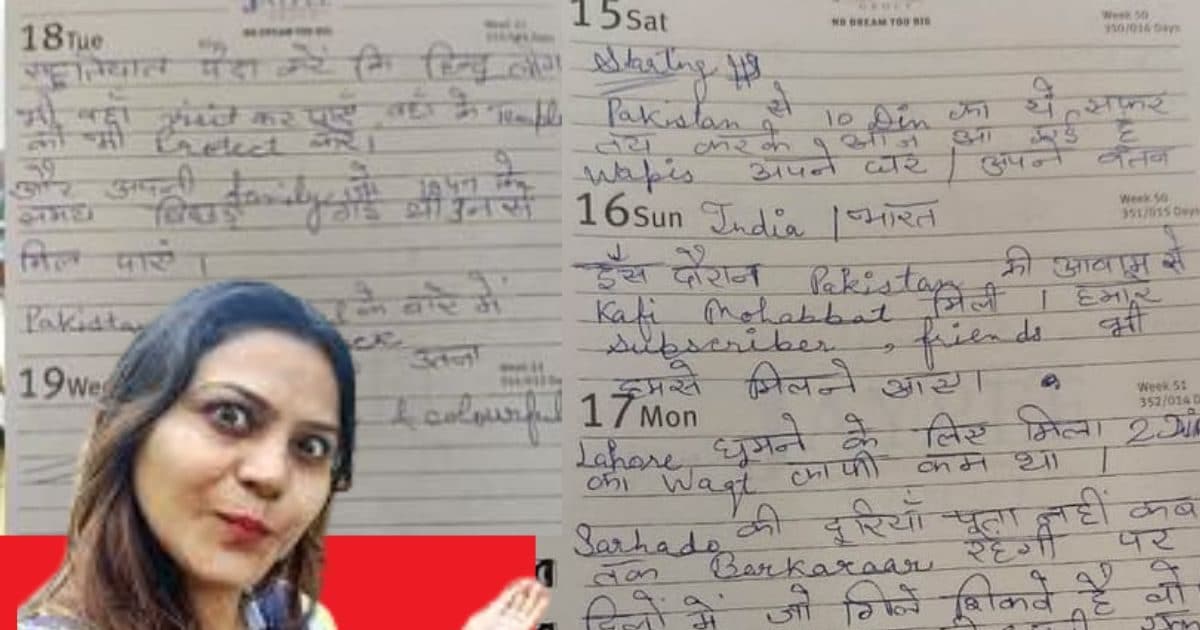 NO DREAM TOO BIG
18 Tue
पैदा करें कि हिन्दू लोग
भी वहाँ visit कर पाएँ वहाँ के Temple
को भी Protect करें।
और अपनी family जो 1947 के
समय बिछड़ गई थी उनसे
मिल पाएं।
Pakistan के बारे में
उतना
19 Wed
& colourful
NO DREAM TOO BIG
15 Sat
Week 50
350/016 Days
Starting
Pakistan से 10 Din का ये सफर
तय करके आज आ गई हूँ
Wapis अपने घर | अपने वतन
16 Sun
Week 50
351/015 Days
India | भारत
इस दौरान Pakistan की आवाम से
Kafi Mohabbat मिली | हमारे
subscriber, friends भी
हमसे मिलने आए।
17 Mon
Week 51
352/014 D
Lahore घूमने के लिए मिला 2 Din
का Waqt काफी कम था |
Sarhado की दूरियाँ पता नहीं कब
तक Barkaraar रहेगी पर
दिलों में जो गिले शिकवे है वो